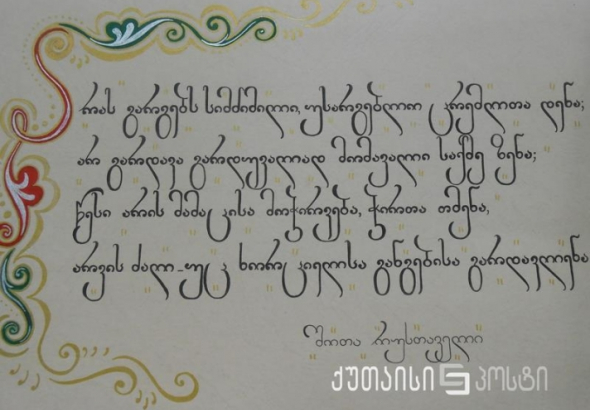 რას გარგებს სიმძიმილი, უსარგებლო ცრემლთა დენა;
არ გარდავა გარდუვალად მომავალი საქმე ზენა;
წესი არის მამაცისა მოჭირვება, ჭირთა თმენა,
არვის ძალ-უც ხორციელსა განგებისა გარდავლენა
შოთა რუსთაველი
ქუთაისი პოსტი